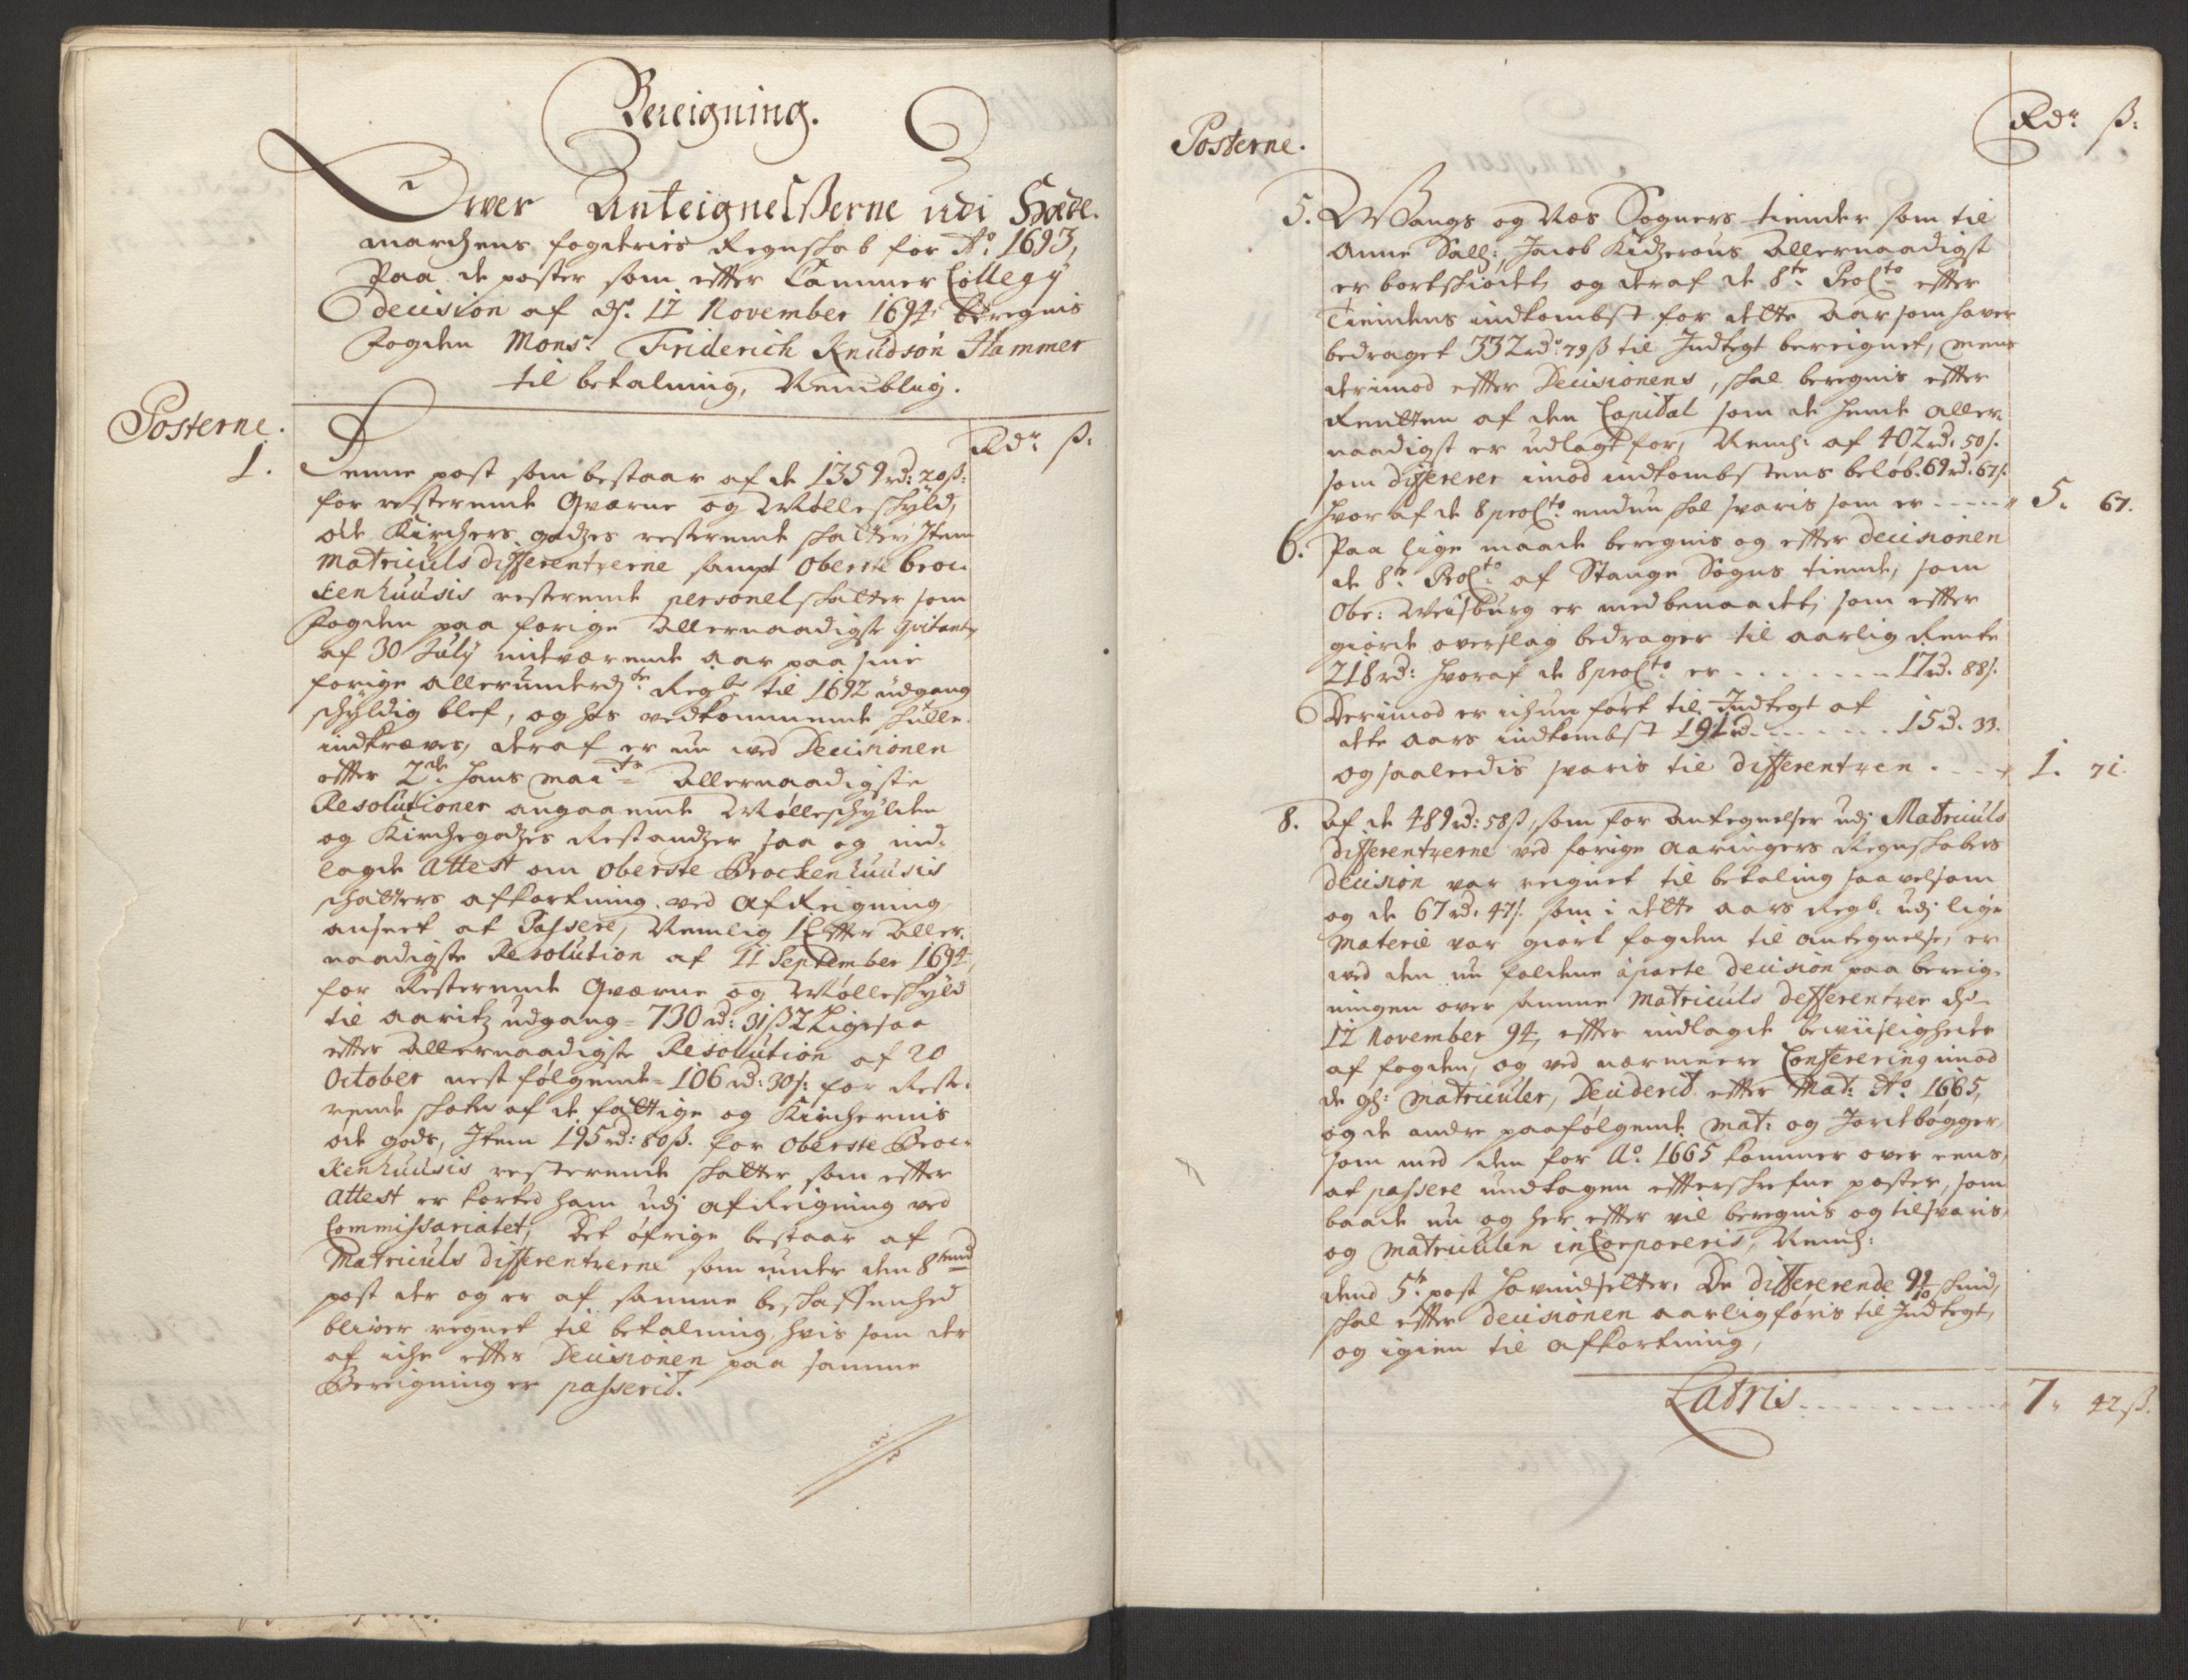 Bereigning.
Over Anteignelßerne udi Hede-
marchens fogderies Regnskab for Ao. 1693,
Paa de poster som effter Cammer Collegy
decision af ds. 12 November 1694 beregnis
fogden Monsr. Friderich Knudsøn Hammer
til betalning, Nemblig.
Posterne.
Rdr ß:
1. Denne post som bestaar af de 1359 rd: 20 ß:
for resterende Qværne og Mølleskyld,
øde Kirchers godzes resterende skatter, Item
Matriculs differentzerne sampt Oberste Broc-
kenhuusis resterende personel skatter som
fogden paa forige Allernaadigste Qvitantz
af 30 July indeværende aar paa sine
forige allerunderd:ste Regb: til 1692 udgang
schyldig blef, og hos vedkommende skulle
indkræves, deraf er nu ved Decisionen
effter 2de Hans May:ts Allernaadigste
Resolutioner angaaende Mølleschylden
og Kirchegodzes Restandzer saa og ind-
lagde Attest om Oberste Brockenhuusis
schatters afkortning ved Afreigning
anseet at Passere, Nemlig 1 Effter Aller-
naadigste Resolution af 11 September 1694,
for Resterende Qværne og Mølleskyld
til aaritz udgang = 730 rd: 31 ß 2 Ligesaa
effter Allernaadigste Resolution af 20
October nest følgende = 106 rd: 30 ß: for Reste-
rende skatter af de fattige og Kirchernis
øde gods, Item 195 rd: 80 ß. for Oberste Broc-
kenhuusis resterende skatter som effter
Attest er korted ham udj Afreigning ved
Commissariatet, Det øfrige bestaar af
Matriculs differentzerne som under den 8tende
post der og er af samme beskaffenhed
bliver regnet til betalning, hvis som der
af iche effter Decisionen paa samme
Bereigning er passerit.
Posterne.
Rdr ß:
5. Wangs og Næs Sogners tiender som til
Anne Sall:, Jacob Kidzerous Allernaadigst
er bortskiødet, og deraf de 8te ProCto effter
Tiendens indkombst for dette Aar som haver
bedraget 332 rd: 79 ß til Indtegt bereignet, mens
derimod effter Decisionens, skal beregnis effter
Rentten af den Capital som de hende aller-
naadigst er udlagt for, Neml: af 402 rd. 50 ß.
som differerer imod indkombstens beløb. 69 rd. 67 ß.
hvor af de 8 proCto endnu skal svaris som er - - - - 5. 67.
6. Paa lige maade beregnis og effter decisionen
de 8te ProCto af Stange Sogns tiende, som
Obr: Weisburg er med benaadet, som effter
giorde overslag bedrager til aarlig Rente
218 rd: hvoraf de 8 proCto er . . . . . . . 17 rd. 88 ß.
Derimod er ichun ført til Indtegt af
dete aars indkombst 191 rd. - - - - - 15 rd. 33.
og saaleedis svaris til differentzen . . . 1. 71.
8. Af de 489 rd: 58 ß, som for antegnelser udj Matriculs
differentzerne ved forige Aaringers Regnskabers
decision var reignet til betaling saavelsom
og de 67 rd. 47 ß. som i dette aars Regb. udj lige
Materie var giort fogden til antegnelse, er
ved den nu faldene aparte decision paa bereig-
ningen over samme Matriculs differentzer ds.
12 November 94, effter indlagde beviisligheder
af fogden, og ved nærmere Confererring imod
de gl: Matriculer, Deciderit effter Mat: Ao. 1665,
og de andre paafølgende Mat: og Jordebøgger,
som med den for Ao. 1665 kommer over eens,
at passere undtagen effterskrefne poster, som
baade nu og her effter vil beregnis og tilsvaris,
og Matriculen inCorporeris, Neml:
dend 5te post De differerende 9 1/2 skind,
skal effter decisionen aarlig føris til Indtegt,
og igien til afkortning,
Latris . . . . . . . . . 7. 42 ß.